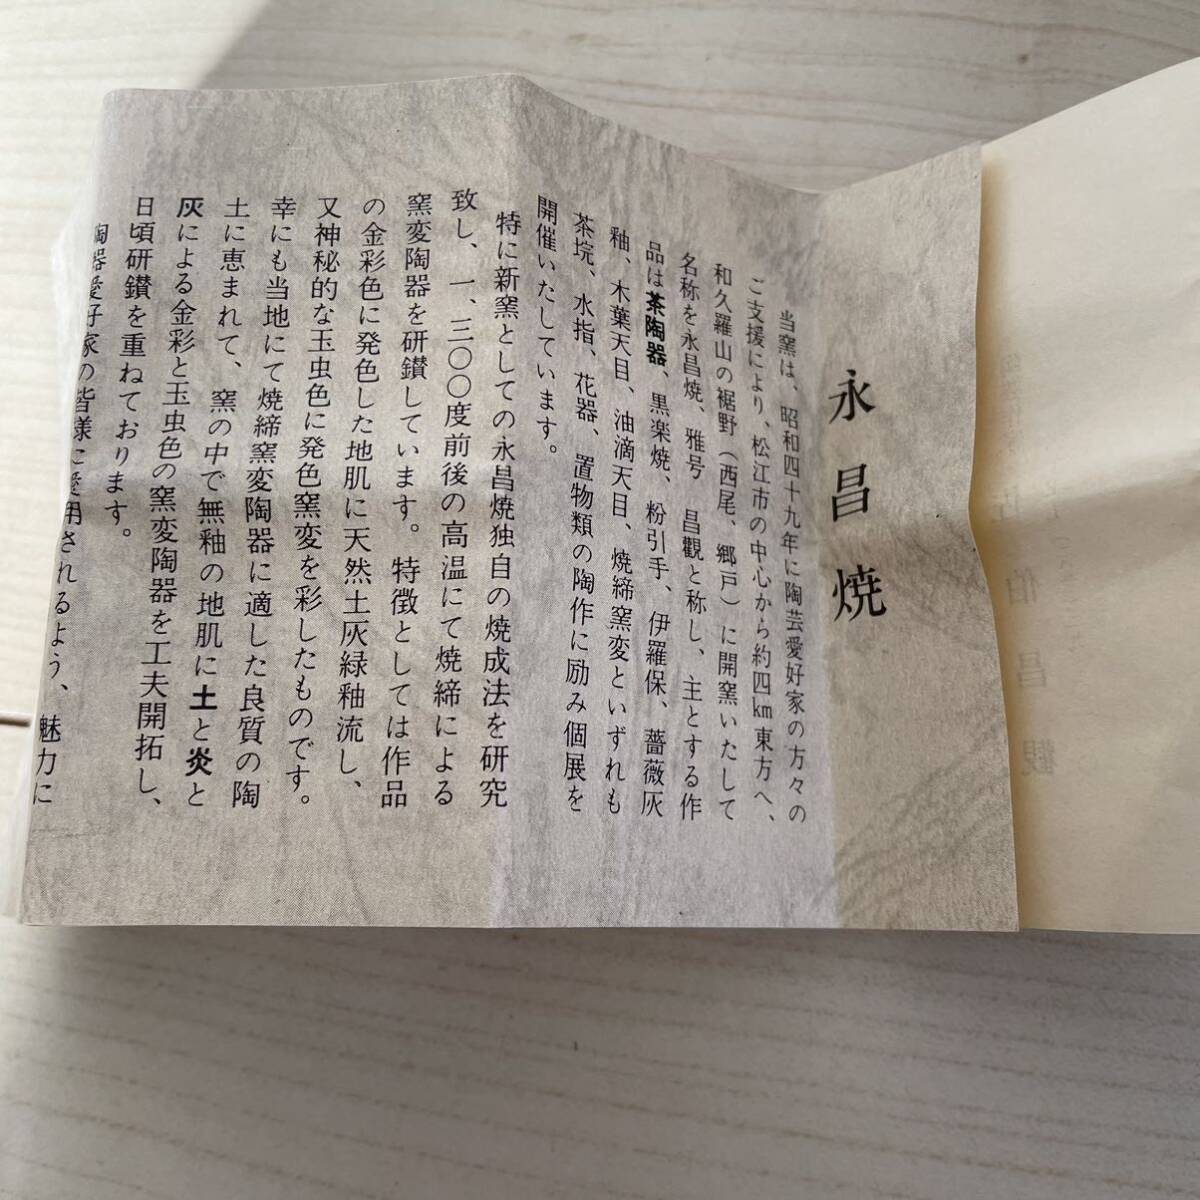 永昌焼
当窯は、昭和四十九年に陶芸愛好家の方々の
ご支援により、松江市の中心から約四km東方へ、
和久羅山の裾野(西尾、郷戸)に開窯いたして
名称を永昌焼、雅号 昌觀と称し、主とする作
品は茶陶器、黒楽焼、粉引手、伊羅保、薔薇灰
釉、木葉天目、油滴天目、焼締窯変といずれも
茶埦、水指、花器、置物類の陶作に励み個展を
開催いたしています。
特に新窯としての永昌焼独自の焼成法を研究
致し、一、三〇〇度前後の高温にて焼締による
窯変陶器を研鑚しています。特徴としては作品
の金彩色に発色した地肌に天然土灰緑釉流し、
又神秘的な玉虫色に発色窯変を彩したものです。
幸にも当地にて焼締窯変陶器に適した良質の陶
土に恵まれて、窯の中で無釉の地肌に土と炎と
灰による金彩と玉虫色の窯変陶器を工夫開拓し、
日頃研鑚を重ねております。
陶器愛好家の皆様に愛用されるよう、魅力に